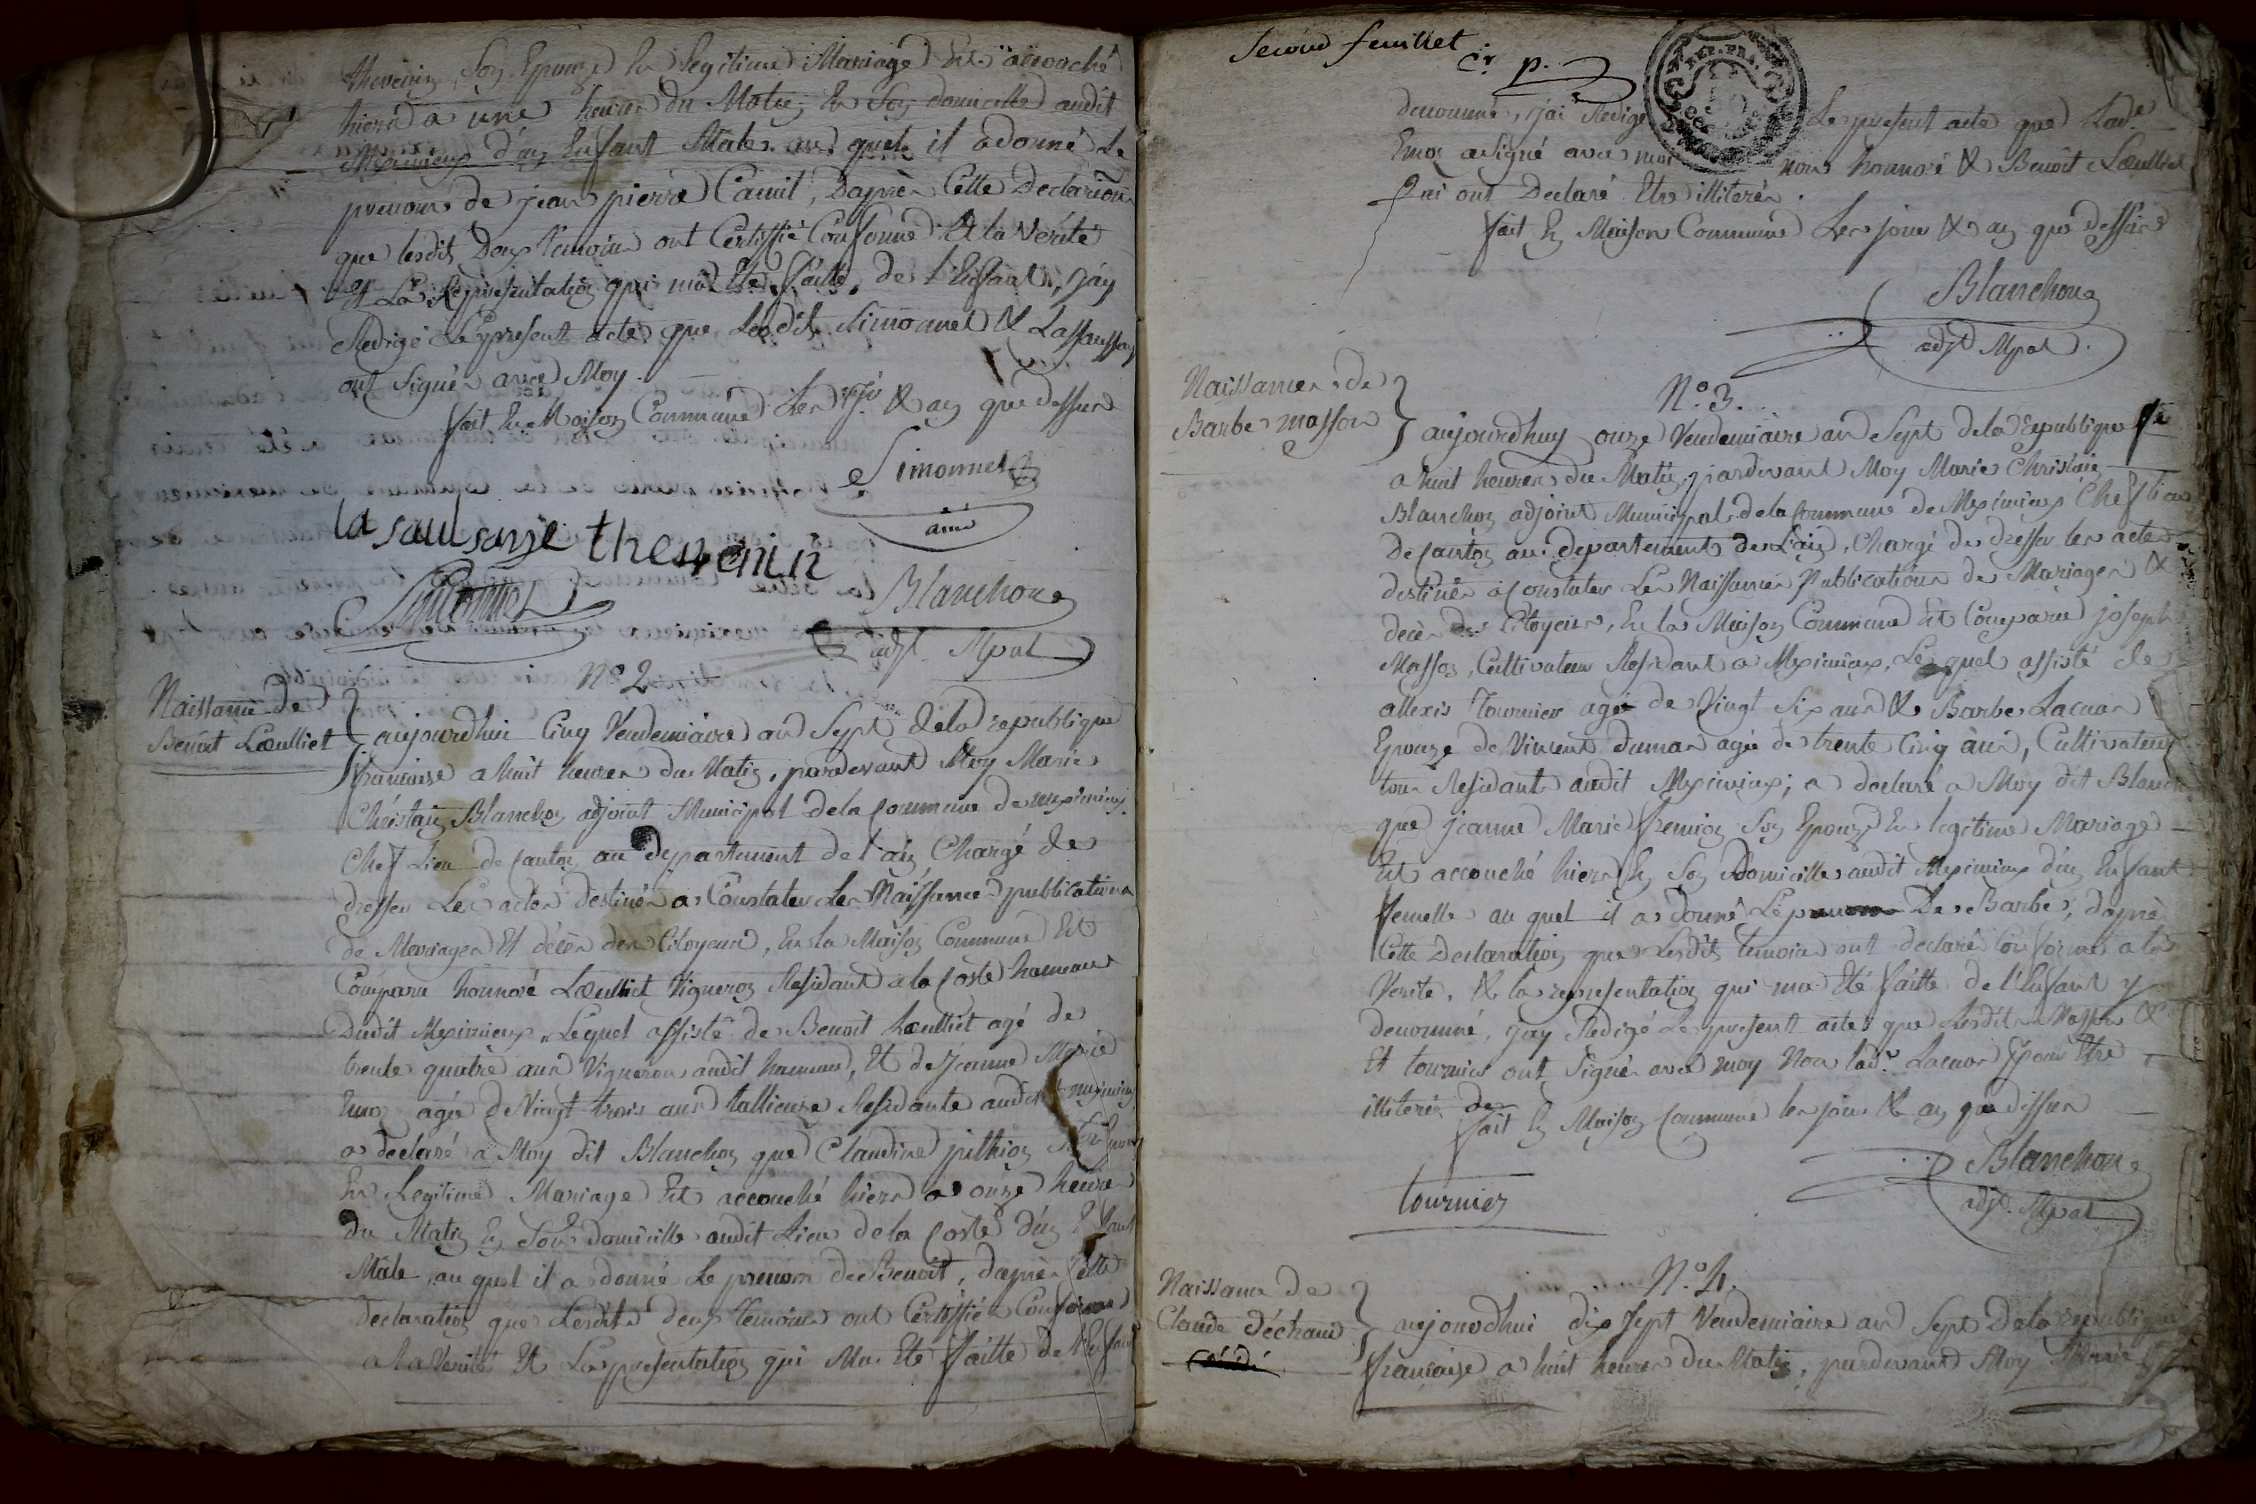 thevenin, Son Epouze En Legitime Mariage Est accouché
hiere a une heure du Matin En Son domicille audit
Meximieux d'un Enfant Male, au quel il adonné Le
prenom de jean pierre Camil, Daprès Cette Declaration
que lesdits Deux Temoins ont Certiffié Conforme A la Vérité
Et La Representation qui ma Eté faitte, de l'Enfant, jay
Redigé Le present acte que Lesdits Simonnet & Lassaussay
ont Signés avec Moy.
fait En Maison Commune Les jr & an que dessus
Simonnet
ainé
la saulsaye thevenin
Blanchon
adjt Mpal
N° 2
Naissance de
Benoit Lœulliet
aujourdhui Cinq Vendemiaire an Sept dela republique
francaise a huit heures du Matin, pardevant Moy Marie
Christain Blanchon adjoint Municipal dela Commune de meximieux
Chef Lieu de Canton au departement de l'ain Chargé de
dresser Les actes destinés a Constater Les Naissance publications
de Mariages Et décès des Citoyens, En la Maison Commune Est
Comparu honnoré Lœulliet Vigneron Residant a la Coste hameau
Dudit Meximieux, Lequel assisté de Benoit Lœulliet agé de
trente quatre ans Vigneron audit hameau, Et de jeanne Marie
Emoz agée de Vingt trois ans tallieuse Residante audit meximieux
a declaré a Moy dit Blanchon que Claudine
En Legitime Mariage Est accouché hiere a onze heures
du Matin En Son domicille audit Lieu dela Coste d'un Enfant
Male au quel il a donné Le prenom de Benoit, daprès Cette
declaration que Lesdits deux temoins ont Certiffiés Conforme
a la Verité Et La presentation qui Ma Eté faitte de l'Enfant
Second feuillet
denommé, jai Redigé Le present acte que Ladte
Emoz a Signé avec moi non honnoré & Benoit Lœulliet
qui ont Declaré Etre illiterés.
fait En Maison Commune Les jour & an que dessus
Blanchon
adjt Mpal.
N° 3.
Naissance de
Barbe masson
aujourdhuy onze Vendemiaire an Sept dela Republique fse
a huit heures du Matin, pardevant Moy Marie Christain
Blanchon adjoint Municipal dela Commune de Meximieux Chef lieu
De Canton au departement de L'ain, Chargé de dresser les actes
destinés a Constater Les Naissances Publications de Mariages &
décès des Citoyens, En la Maison Commune Est Comparu joseph
Masson, Cultivateur Residant a Meximieux, Lequel assisté de
allexis Tournier agé de Vingt Six ans & Barbe Lacuar
Epouze de Vincent dumar agée de trente Cinq ans, Cultivateurs
tous Residants audit Meximieux; a declaré a Moy dit Blanch
que jeanne Marie fremion Son Epouze En legitime Mariage
Est accouché hiere En Son Domicille audit Meximieux d'un Enfant
femelle au quel il a donné Le prenom De Barbe, daprès
Cette Declaration que Lesdits temoins ont declaré Conforme a la
Verité, & la representation qui ma Eté faitte de l'Enfant y
denommé, jay Redigé Le present acte que Lesdits Masson &
Et tournier ont Signés avec moy Non ladte Lacuar pour Etre
illiterés de
fait En Maison Commune les jour & an que dessus
Blanchon
adjt. Mpal
tournier
N.° 4.
Naissance de
Claude déchaud
aujourdhui dix Sept Vendemiaire an Sept Dela republique
francaise a huit heures du Matin, pardevant Moy Marie